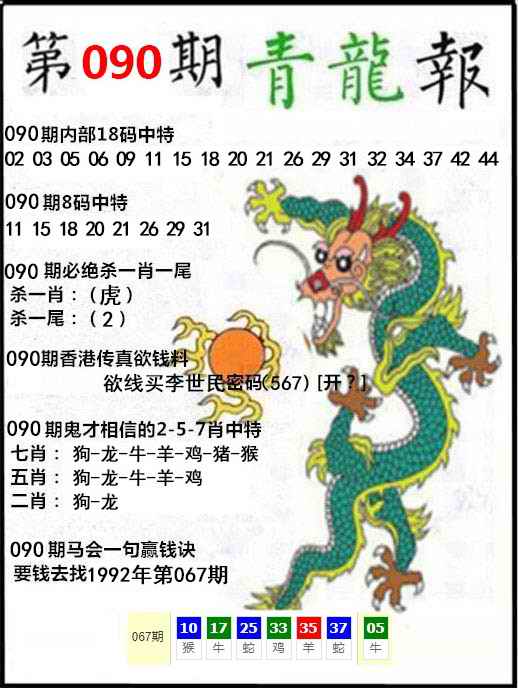 第090期青龍報
090期内部18码中特
02 03 05 06 09 11 15 18 20 21 26 29 31 32 34 37 42 44
090期8码中特
11 15 18 20 21 26 29 31
090 期必绝杀一肖一尾
杀一肖：（虎）
杀一尾：（2）
090期香港传真欲钱料
欲线买李世民密码(567) [开？]
090期鬼才相信的2-5-7肖中特
七肖：狗-龙-牛-羊-鸡-猪-猴
五肖：狗-龙-牛-羊-鸡
二肖：狗-龙
090期马会一句赢钱诀
要钱去找1992年第067期
067期 10 17 25 33 35 37 05
猴 牛 蛇 鸡 羊 蛇 牛